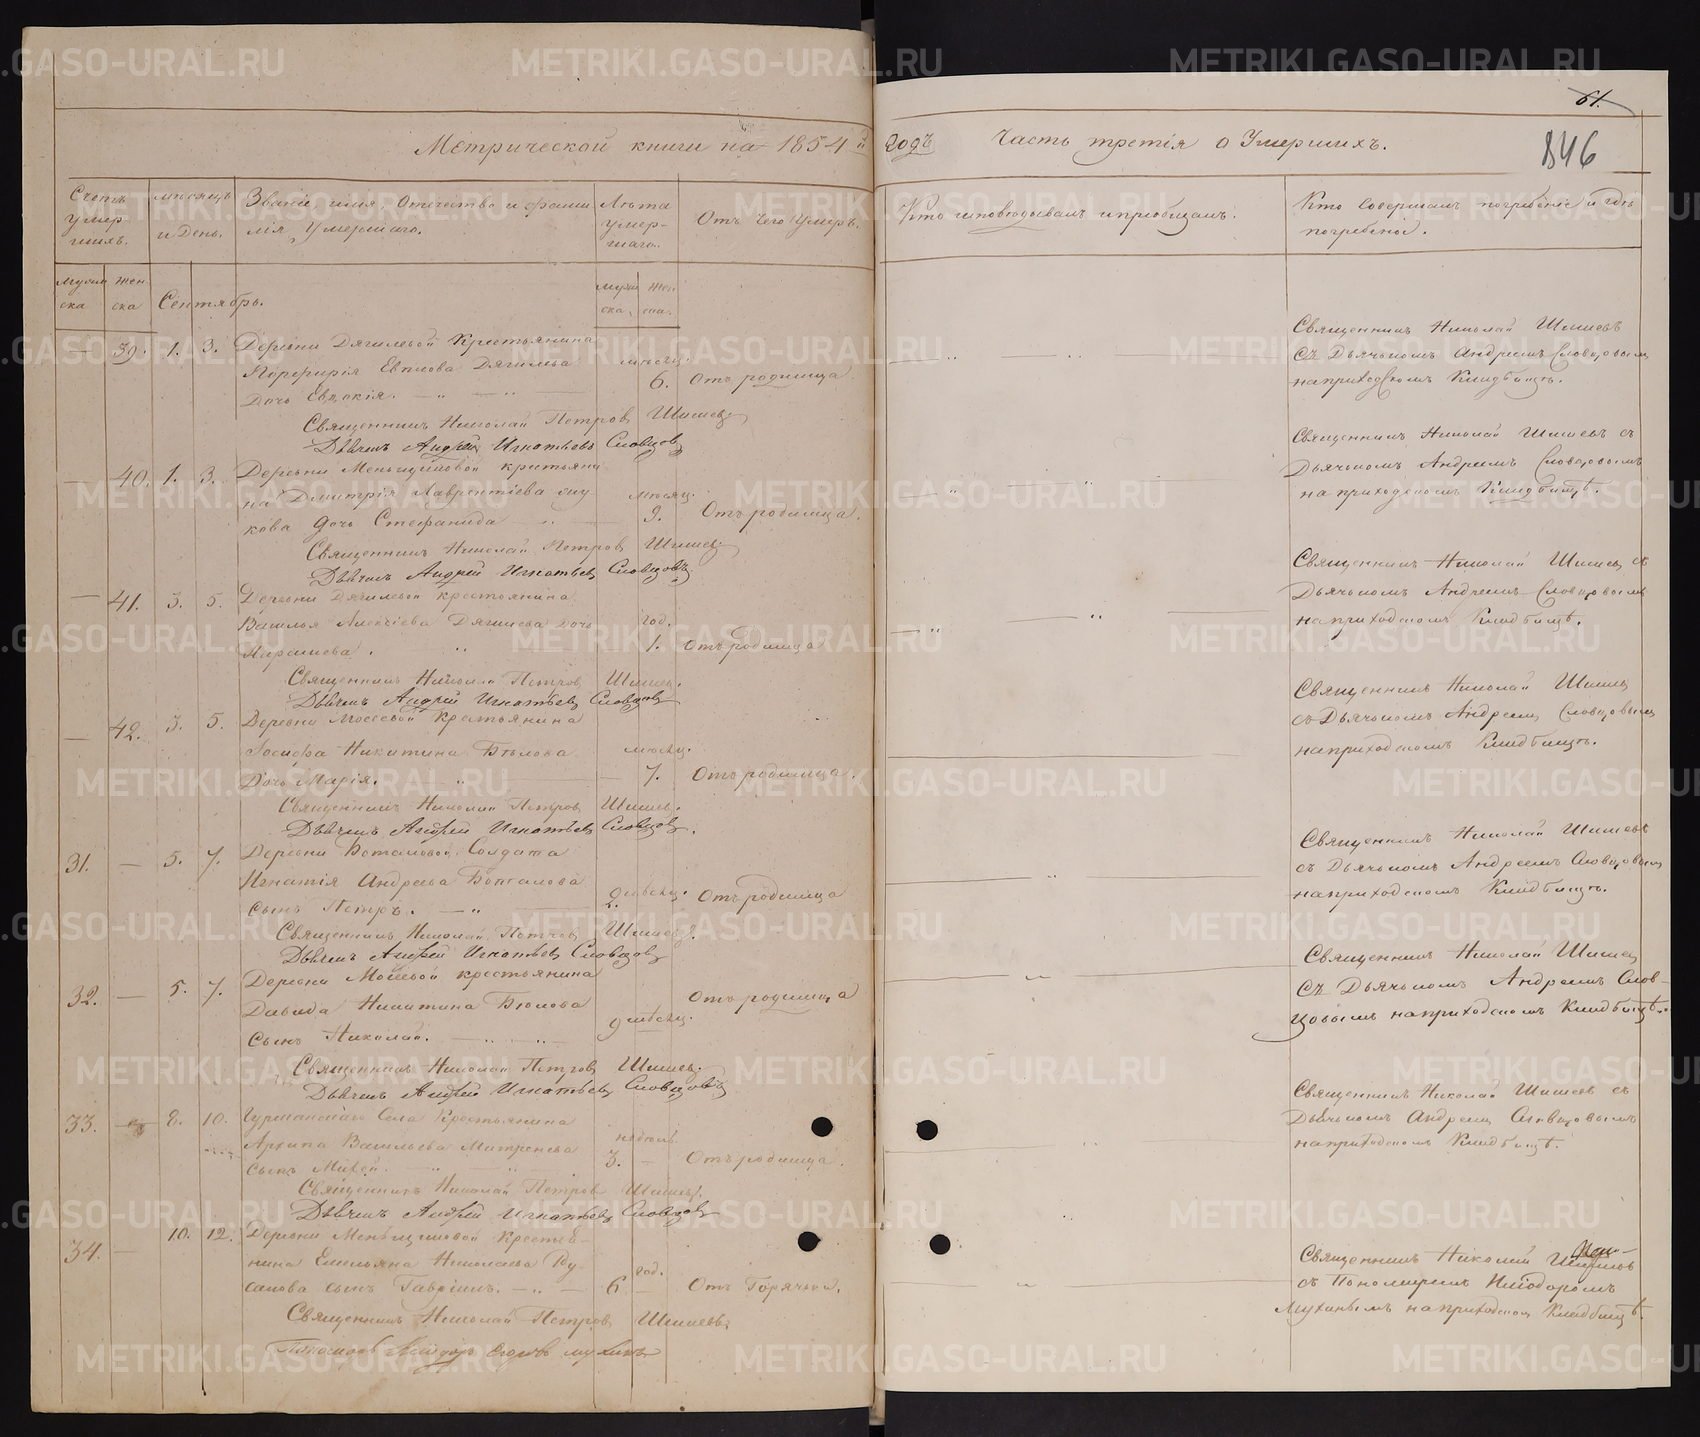 Метрической книги на 1854 й
годъ Часть третiя о Умершихъ.
61.
846
Счетъ умершихъ.
мѣсяцъ и день.
Званiе, имя, Отечество и фамилiя Умершаго.
Лѣта умершаго.
Отъ Чего Умеръ.
Кто исповѣдывалъ и прiобщалъ.
Кто Совершалъ погребенiе и гдѣ погребены.
Мужеска Женска Сентябрь. мужеска, женска.
39. 1. 3. Деревни Дягилевой Крестьянина
Порфирiя Евплова Дягилева мѣсяц.
Дочь Евдокiя. 6. Отъ родимца
Священникъ Николай Петровъ Шишевъ
Дьячекъ Андрей Игнатьевъ Словцовъ
Священникъ Николай Шишевъ
съ Дьячкомъ Андреемъ Словцовымъ
на приходскомъ Кладбищѣ.
40. 1. 3. Деревни Меньщиковой крестьяни
на Димитрiя Лаврентiева мѣсяц.
кова дочь Стефанида 9. Отъ родимца.
Священникъ Николай Петровъ Шишевъ
Дьячекъ Андрей Игнатьевъ Словцовъ
Священникъ Николай Шишевъ съ
Дьячкомъ Андреемъ Словцовымъ
на приходскомъ Кладбищѣ.
41. 3. 5. Деревни Дягилевой крестьянина
Василья Алексiева Дягилева дочь год.
1. Отъ родимца
Священникъ Николай Петровъ Шишевъ.
Дьячекъ Андрей Игнатьевъ Словцовъ
Священникъ Николай Шишевъ съ
Дьячкомъ Андреемъ Словцовымъ
на приходскомъ Кладбищѣ.
42. 3. 5. Деревни Мосеевой Крестьянина
Iосифа Никитина Бѣлова мѣсяц.
Дочь Марiя. 7. Отъ родимца.
Священникъ Николай Петровъ Шишевъ.
Дьячекъ Андрей Игнатьевъ Словцовъ.
Священникъ Николай Шишевъ
съ Дьячкомъ Андреемъ Словцовымъ
на приходскомъ Кладбищѣ.
31. 5. 7. Деревни Боталовой Солдата
Игнатiя Андреева Боталова
сынъ Петръ. 2 мѣсяц. Отъ родимца
Священникъ Николай Петровъ Шишевъ.
Дьячекъ Андрей Игнатьевъ Словцовъ
Священникъ Николай Шишевъ
съ Дьячкомъ Андреемъ Словцовымъ
на приходскомъ Кладбищѣ.
32. 5. 7. Деревни Мосеевой крестьянина
Давида Никитина Бѣлова Отъ родимца
сынъ Николай. 9 мѣсяц.
Священникъ Николай Петровъ Шишевъ.
Дьячекъ Андрей Игнатьевъ Словцовъ
Священникъ Николай Шишевъ
съ Дьячкомъ Андреемъ Слов-
цовымъ на приходскомъ Кладбищѣ.
33. 8. 10. Села Крестьянина
Архипа Васильева Митренева недѣль
сынъ Михей. 3. Отъ родимца.
Священникъ Николай Петровъ Шишевъ.
Дьячекъ Андрей Игнатьевъ Словцовъ
Священникъ Николай Шишевъ съ
Дьячкомъ Андреемъ Словцовымъ
на приходскомъ Кладбищѣ.
34. 10. 12. Деревни Меньщиковой Крестья-
нина Емельяна Николаева Ру- год.
сакова сынъ Гаврiилъ. 6 Отъ Горячки.
Священникъ Николай Петровъ Шишевъ.
Пономарь Егоровъ Мухинъ
Священникъ Николай Шишевъ
съ Пономаремъ Нiодоромъ
Мухинымъ на приходском Кладбищѣ.
METRIKI.GASO-URAL.RU